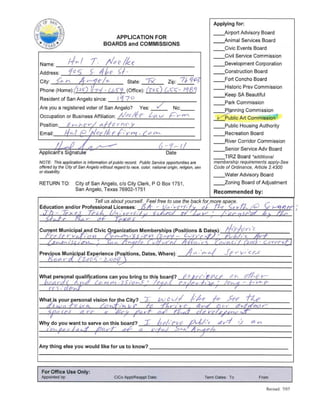 APPLICATION FOR
BOARDS and COMMISSIONS
Name: Hal T. Noelke
Address: 905 S Abe St.
City San Angelo State TX Zip: 76903
Phone (Home) (Office)
Resident of San Angelo since: 1970
Are you a registered voter of San Angelo? Yes: ✓ No:
Occupation or Business Affiliation: Noelke Law Firm
Position: owner/attorney
Email: Hal@Noelkefirm.com
6-9-11
Applicant's Signature Date
NOTE: This application is information of public record. Public Service opportunities are
offered by the City of San Angelo without regard to race, color, national origin, religion, sex
or disability.
RETURN TO: City of San Angelo, c/o City Clerk, P O Box 1751,
San Angelo, Texas 76903-1751
Applying for:
Airport Advisory Board
Animal Services Board
Civic Events Board
Civil Service Commission
Development Corporation
Construction Board
Fort Concho Board
Historic Prev Commission
Keep SA Beautiful
Park Commission
Planning Commission
✓ Public Art Commission
Public Housing Authority
Recreation Board
River Corridor Commission
Senior Service Adv Board
TIRZ Board *Additional
membership requirements apply-See
Code of Ordinance, Article 2.4500
Water Advisory Board
Zoning Board of Adjustment
Recommended by:
Tell us about yourself. Feel free to use the back for more space.
Education and/or Professional Licenses: BA - University of the South @ Sewanee;
JD - Texas Tech University School of Law; licensed by the
State Bar of Texas
Current Municipal and Civic Organization Memberships (Positions & Dates) Historic
Preservation Commission current; Public Art
Commission; San Angelo Cultural Affairs Council current
Previous Municipal Experience (Positions, Dates, Where): Animal Services
Board
What personal qualifications can you bring to this board? experience on other
boards and commissions; legal expertise; long-time
resident
What is your personal vision for the City? I would like to see the
downtown continue to thrive, and our outdoor
spaces are a key part of that development
Why do you want to serve on this board? I believe public art is an
important part of a vital San Angelo
Any thing else you would like for us to know?
For Office Use Only:
Appointed by: C/Co Appt/Reappt Date: Term Dates: To From:
Revised